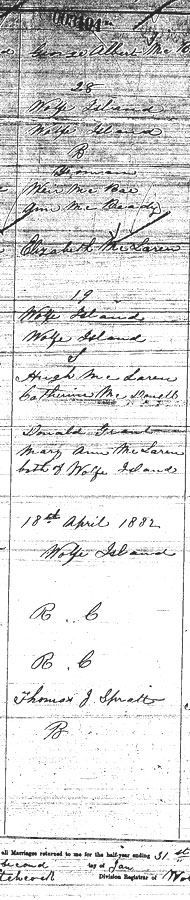 George Albert Mc
28
Wolfe Island
Wolfe Island
B
Yeoman
Weir Mc Rae
Ann Mc Cready
Elizabeth McLaren
19
Wolfe Island
Wolfe Island
S
Hugh Mc Laren
Catherine Mc
Donald Grant
Mary Ann McLaren
both of Wolfe Island
18th April 1882
Wolfe Island
R. C
R. C
Thomas J. Spratt
B.
all Marriages returned to me for the half-year ending 31st
day of Jan
Division Registrar of